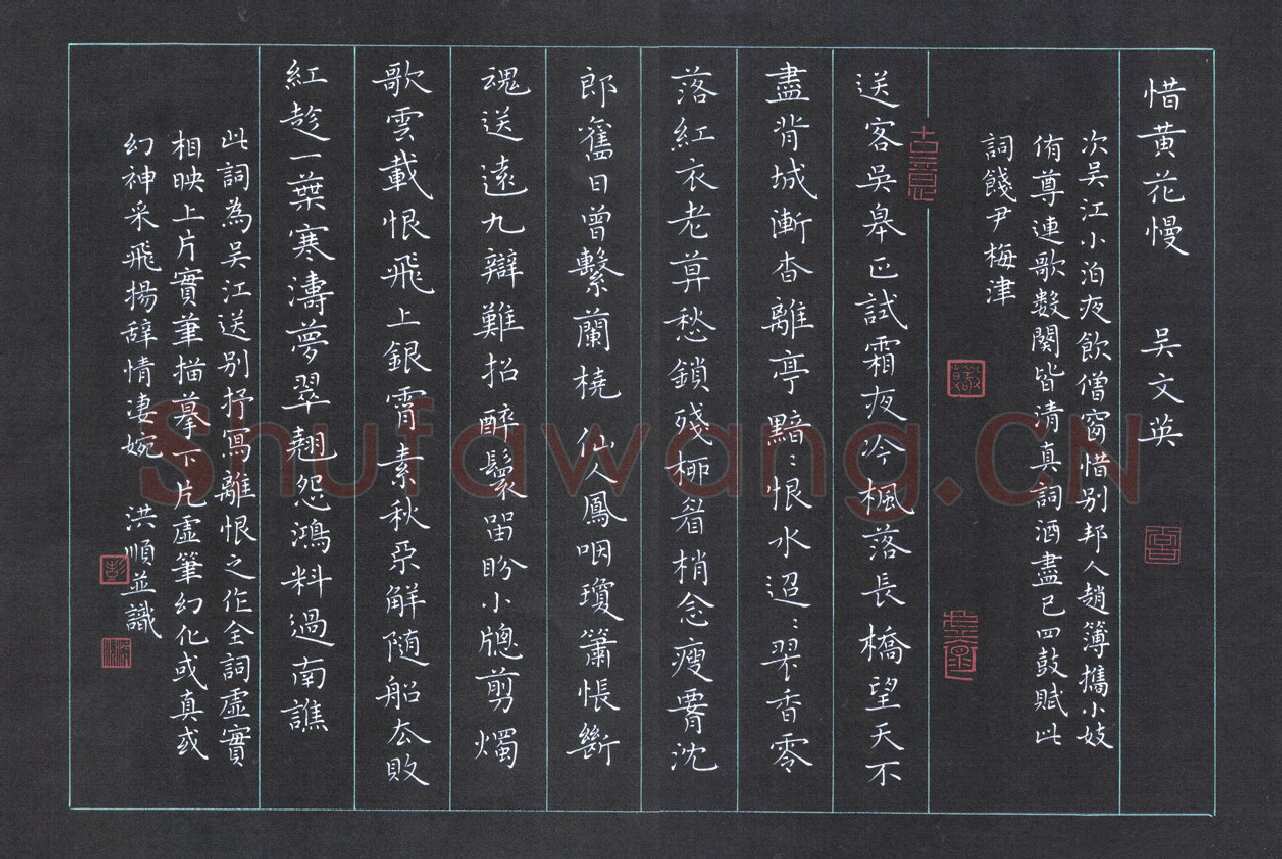 惜黄花慢 吳文英
次吳江小泊夜飲僧窗惜别邦人趙簿攜小妓
侑尊連歌数闋皆清真詞酒盡已四鼓賦此
詞餞尹梅津
送客吳皋正試霜夜冷楓落長橋望天不
盡背城漸杳離亭黯〻恨水迢〻翠香零
落紅衣老莫愁鎖殘柳眉梢念瘦腰沈
郎舊日曾繫蘭橈 仙人鳳咽瓊簫悵斷
魂送遠九辯難招醉鬟留盼小牕剪燭
歌雲載恨飛上銀霄素秋不解随船去敗
紅趁一葉寒濤夢翠翹怨鴻料過南譙
此詞為吴江送别抒寫離恨之作全詞虚實
相映上片實筆描摹下片虚筆幻化或真或
幻神采飛揚辭情凄婉 洪順並識
Shufawang.CN